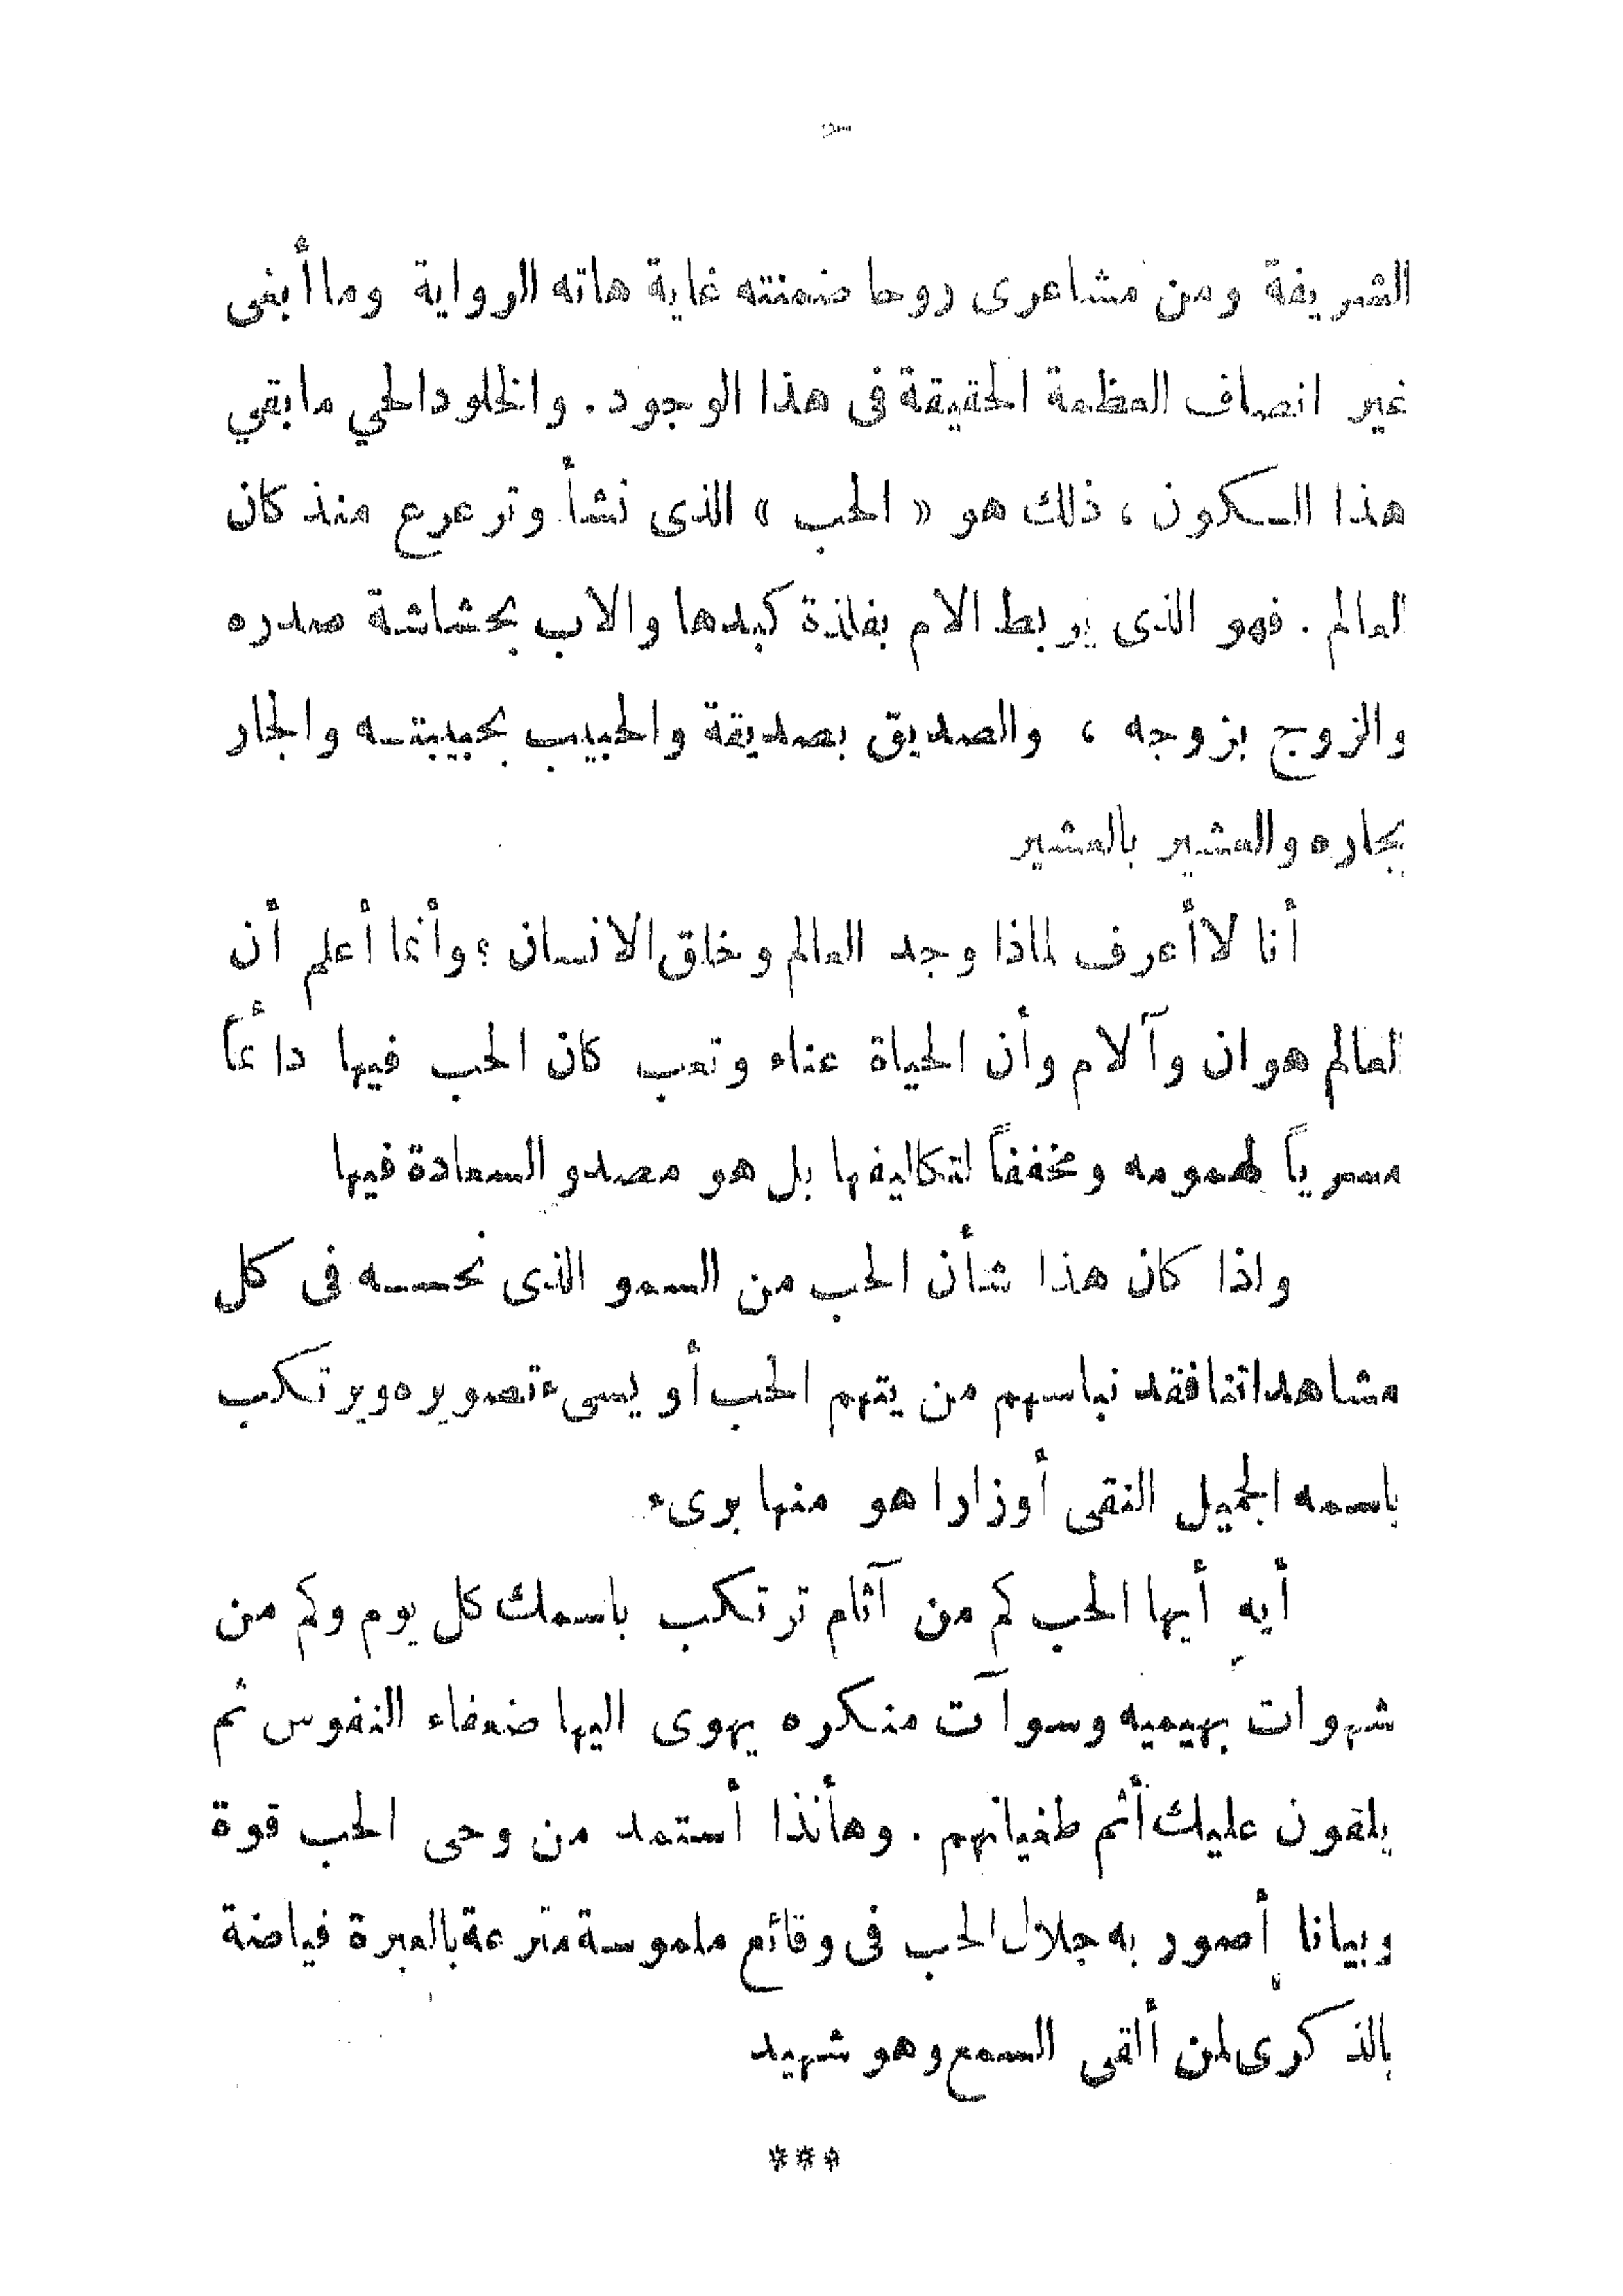 الشريفة ومن مشاعرى روحا ضمنته غاية هاته الرواية وما أبغى
غير انصاف العظمة الحقيقة فى هذا الوجود . والخلود الحي ما بقي
هذا السكون ، ذلك هو « الحب » الذى نشأ وترعرع منذ كان
العالم . فهو الذى يربط الام بفلذة كبدها والاب بحشاشة صدره
والزوج بزوجه ، والصديق بصديقة والحبيب بحبيبته والجار
بجاره والعشير بالعشير
أنا لا أعرف لماذا وجد العالم وخلق الانسان ؟ وأنما أعلم أن
العالم هوان وآلام وأن الحياة عناء وتعب كان الحب فيها دائماً
مسرياً لهمومه ومخففاً لتكاليفها بل هو مصدو السعادة فيها
واذا كان هذا شأن الحب من السمو الذى نحسه فى كل
مشاهداتنا فقد نباسهم من يتهم الحب أو يسىء تصويره ويرتكب
باسمه الجميل النقى أوزارا هو منها برىء
أيهِ أيها الحب كم من آثام ترتكب باسمك كل يوم وكم من
شهوات بهيميه وسوآت منكره يهوى اليها ضعفاء النفوس ثم
يلقون عليك أثم طغيانهم . وهأنذا أستمد من وحى الحب قوة
وبيانا أصور به جلال الحب فى وقائع ملموسة مترعة بالعبرة فياضة
بالذكرى لمن ألقى السمع وهو شهيد
***